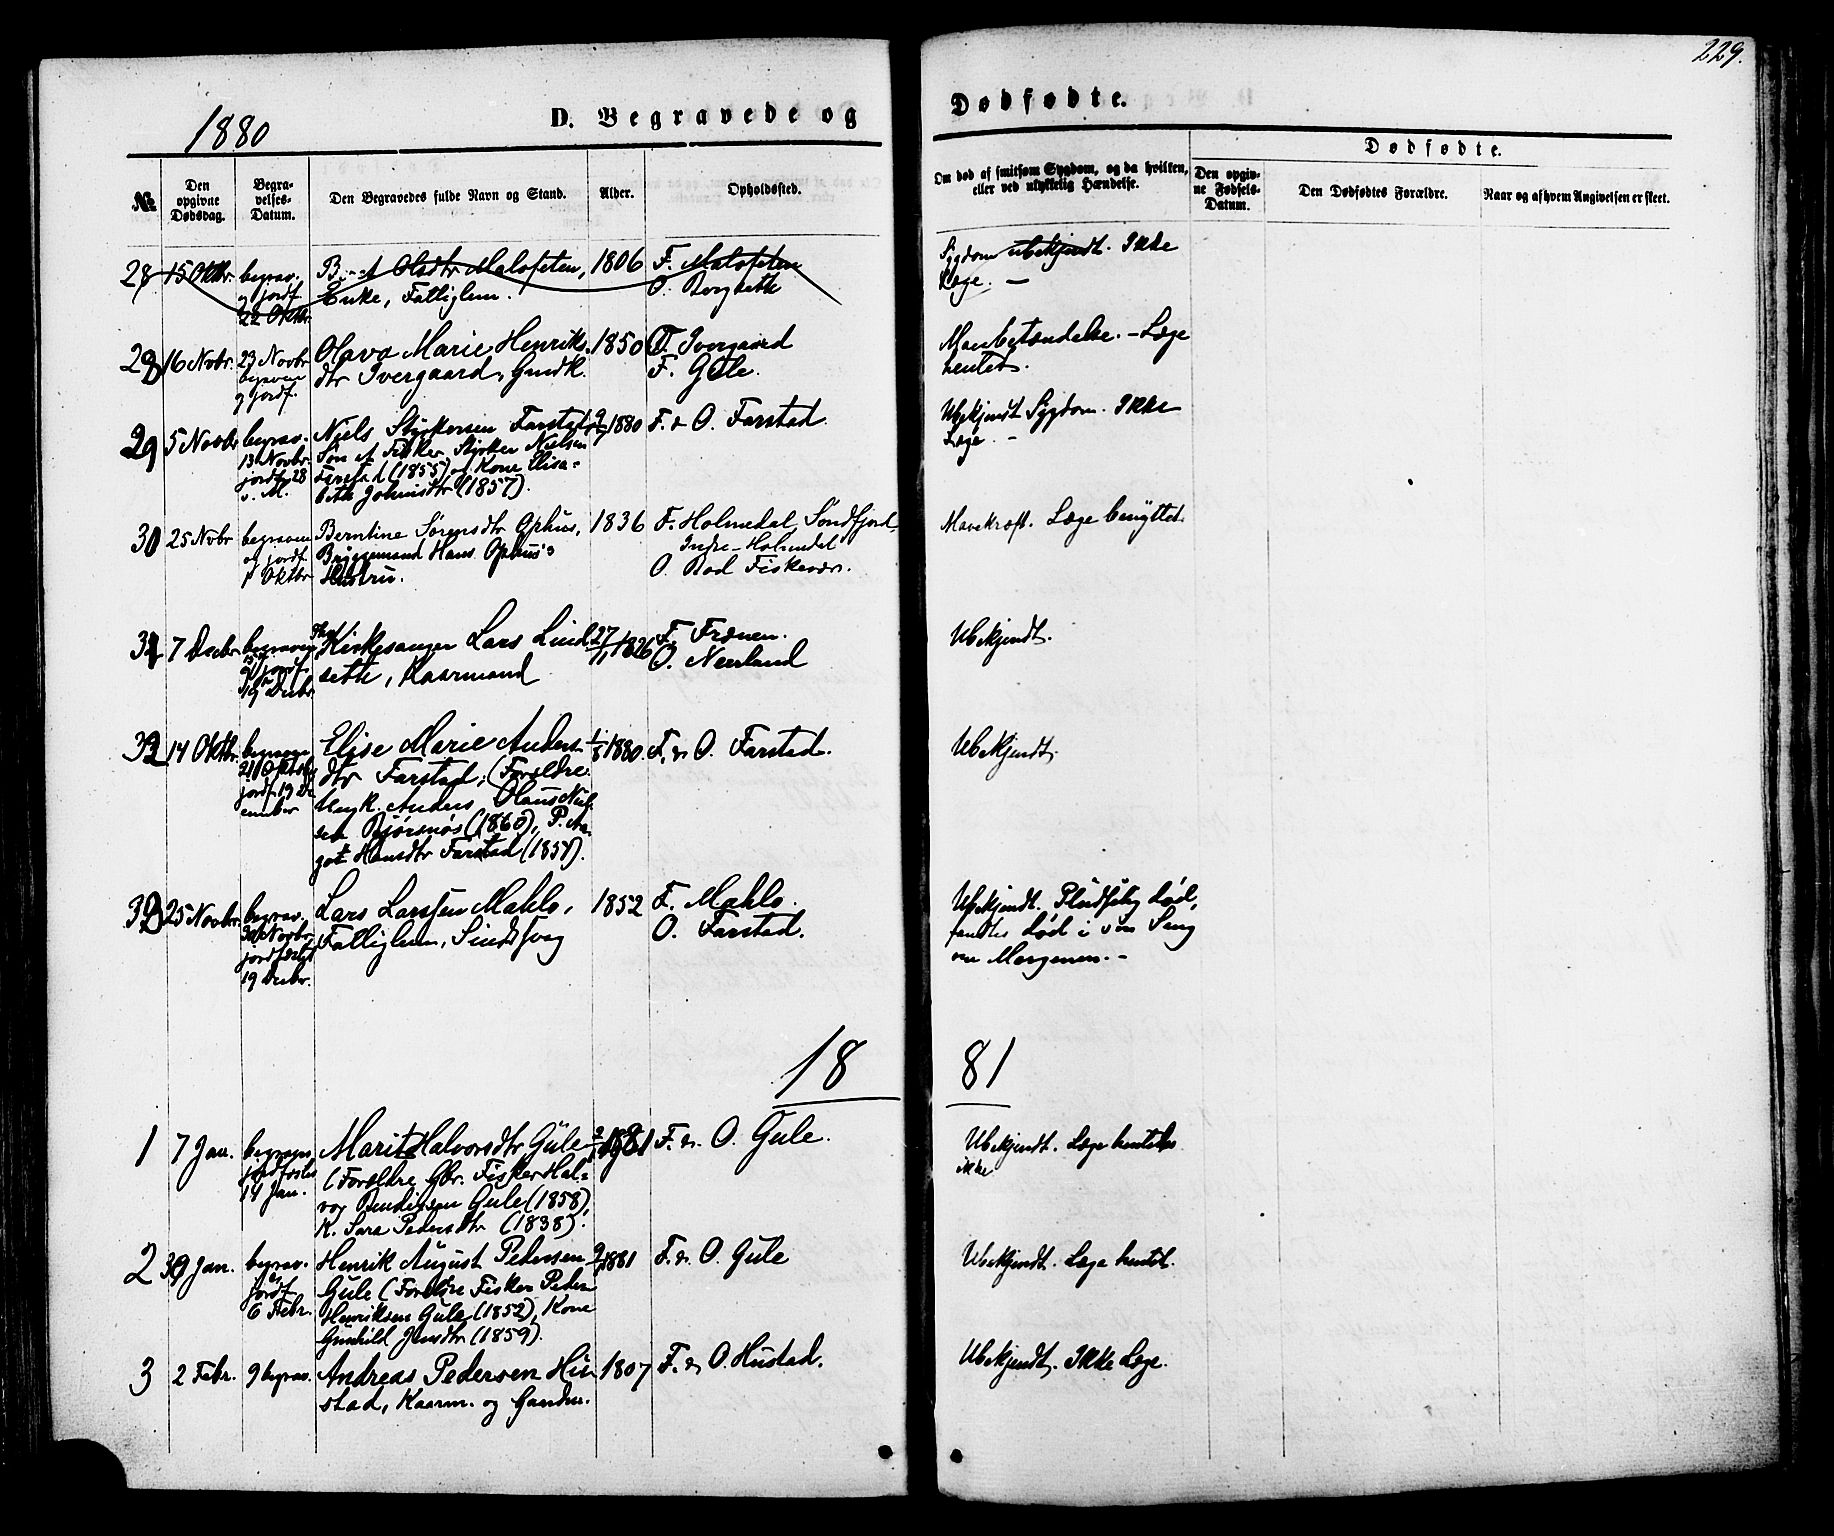 229.
1880
D. Begravede og
Dødfødte.
№
Den opgivne Dødsdag.
Begravelses-Datum.
Den Begravedes fulde Navn og Stand.
Alder.
Opholdssted.
Om død af smitsom Sygdom, og da hvilken, eller ved ulykkelig Hændelse.
Dødfødte.
Den opgivne Fødsels-Datum.
Den Dødfødtes Forældre.
Naar og af hvem Angivelsen er skeet.
28 15 Oktbr. begrav. Olsdtr Malofeten, 1806 F. Malofeten Sygdom ubekjendt. Ikke
og jordf. Enke, Fattiglem. O. Læge. —
22 Oktbr.
28 16 Novbr. 23 Novbr Olava Marie Henriks- 1850 O. Ivergaard Mavebetændelse. - Læge
begraven dtr Ivergaard, Gmdk. F. Gule. hentet.
og jordf.
29 5 Novbr begrav. Niels Styrkersen Farstad 1880 F. & O. Farstad. Ubekjendt Sygdom. Ikke
13 Novbr Søn af Fisker Styrker Nielsen Læge. -
jordf. 28 Farstad (1855) og Kone Elisa-
s. M. beth Johnsdtr (1857).
30 25 Novbr begraven Berntine Sørensdtr Ophus, 1836 F. Holmedal, Søndfjord, Mavekræft. Læge benyttet.
og jordf. Hans Ophus's Indre-Holmedal
1 Oktbr Hustru. O. Bod Fiskevær.
31 7 Decbr begraven Kirkesanger Lars Lind- 27/11 1826 F. Frænen. Ubekjendt.
jordf. sæth, Kaarmand O. Nerland
19 Decbr
32 14 Oktbr. begraven Elise Marie Anders- 1/8 1880. F. & O. Farstad. Ubekjendt.
21 Oktbr dtr Farstad, (Forældre:
jordf. 19 De- Ungk. Anders Olaus Niel-
cember sen Bjørsnøs (1860), P. Ma-
Hansdtr Farstad (1857).
33 25 Novbr begrav. Lars Larssen Mahlo, 1852 F. Mahlo. Ubekjendt. Pludselig død,
30 Novbr. Fattiglem, Sindssvag O. Farstad. fandtes død i sin Seng
jordfæstet om Morgenen. -
19 Decbr.
18 81
1 7 Jan. begraven Marit Halvorsdtr Gule 1881 F. & O. Gule. Ubekjendt. Læge hentedes
jordfæstes (Forældre Gbr. Fisker Hal- ikke
14 Jan. vor Bendiksen Gule (1858),
K. Sara Pedersdtr (1838).
2 30 Jan. begrav. Henrik August Pedersen 1881 F. & O. Gule Ubekjendt. Læge hentet.
jordf. Gule (Forældre Fisker Peder
6 Febr. Henriksen Gule (1852), Kone
Gunhild Jensdtr (1859).
3 2 Febr. 9 begrav. Andreas Pedersen Hu- 1807 F. & O. Hustad. Ubekjendt. Ikke Læge.
stad, Kaarm. og Handm.